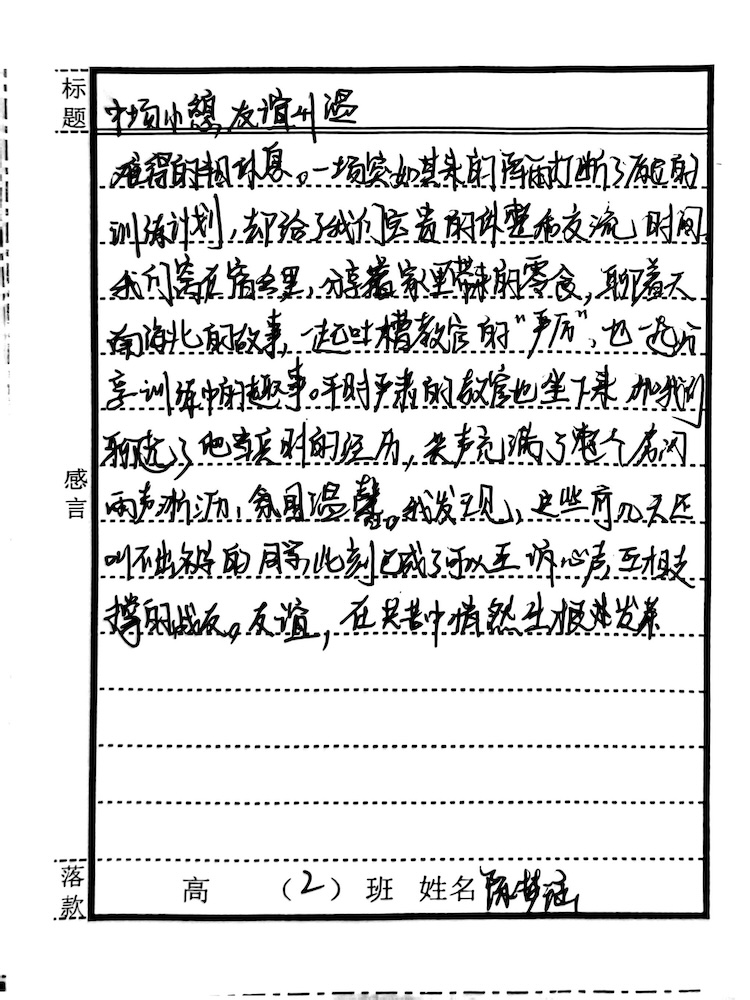 标题
中场小憩,友谊升温
难得的半日休息。一场突如其来的阵雨打断了原定的
训练计划,却给了我们宝贵的休整和交流时间。
我们窝在宿舍里,分享着家里带来的零食,聊着天
南海北的故事,一起吐槽教官的"严厉",也一起分
享训练中的趣事。平时严肃的教官也坐下来和我们
聊起了他当兵时的经历,笑声充满了整个房间
雨声淅沥,氛围温馨。我发现,这些前几天还
叫不出名字的同学,此刻已成了可以互诉心声,互相支
撑的战友。友谊,在共苦中悄然生根发芽
感言
落款
高 (2) 班 姓名 陈梦涵